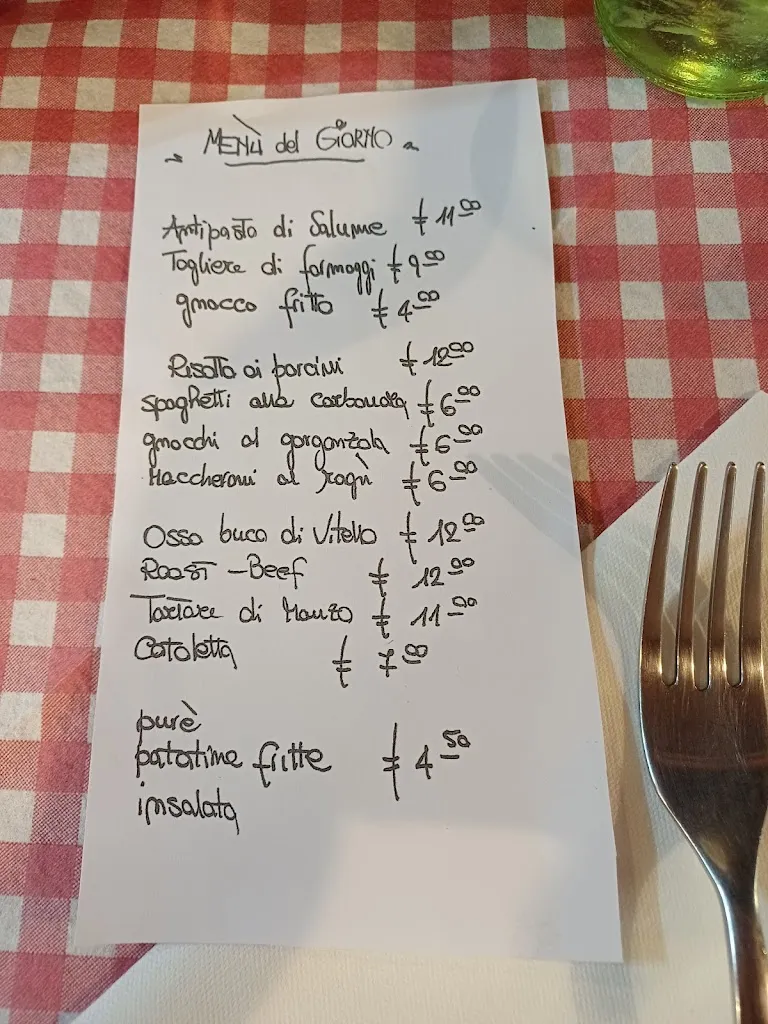 Menù del Giorno
Antipasto di Salume € 11,00
Tagliere di formaggi € 9,00
gnocco fritto € 4,00
Risotto ai porcini € 12,00
spaghetti alla carbonara € 6,00
gnocchi al gorgonzola € 6,00
Maccheroni al ragù € 6,00
Osso buco di Vitello € 12,00
Roast-Beef € 12,00
Tartare di Manzo € 11,00
Cotoletta € 7,00
purè
patatine fritte € 4,50
insalata